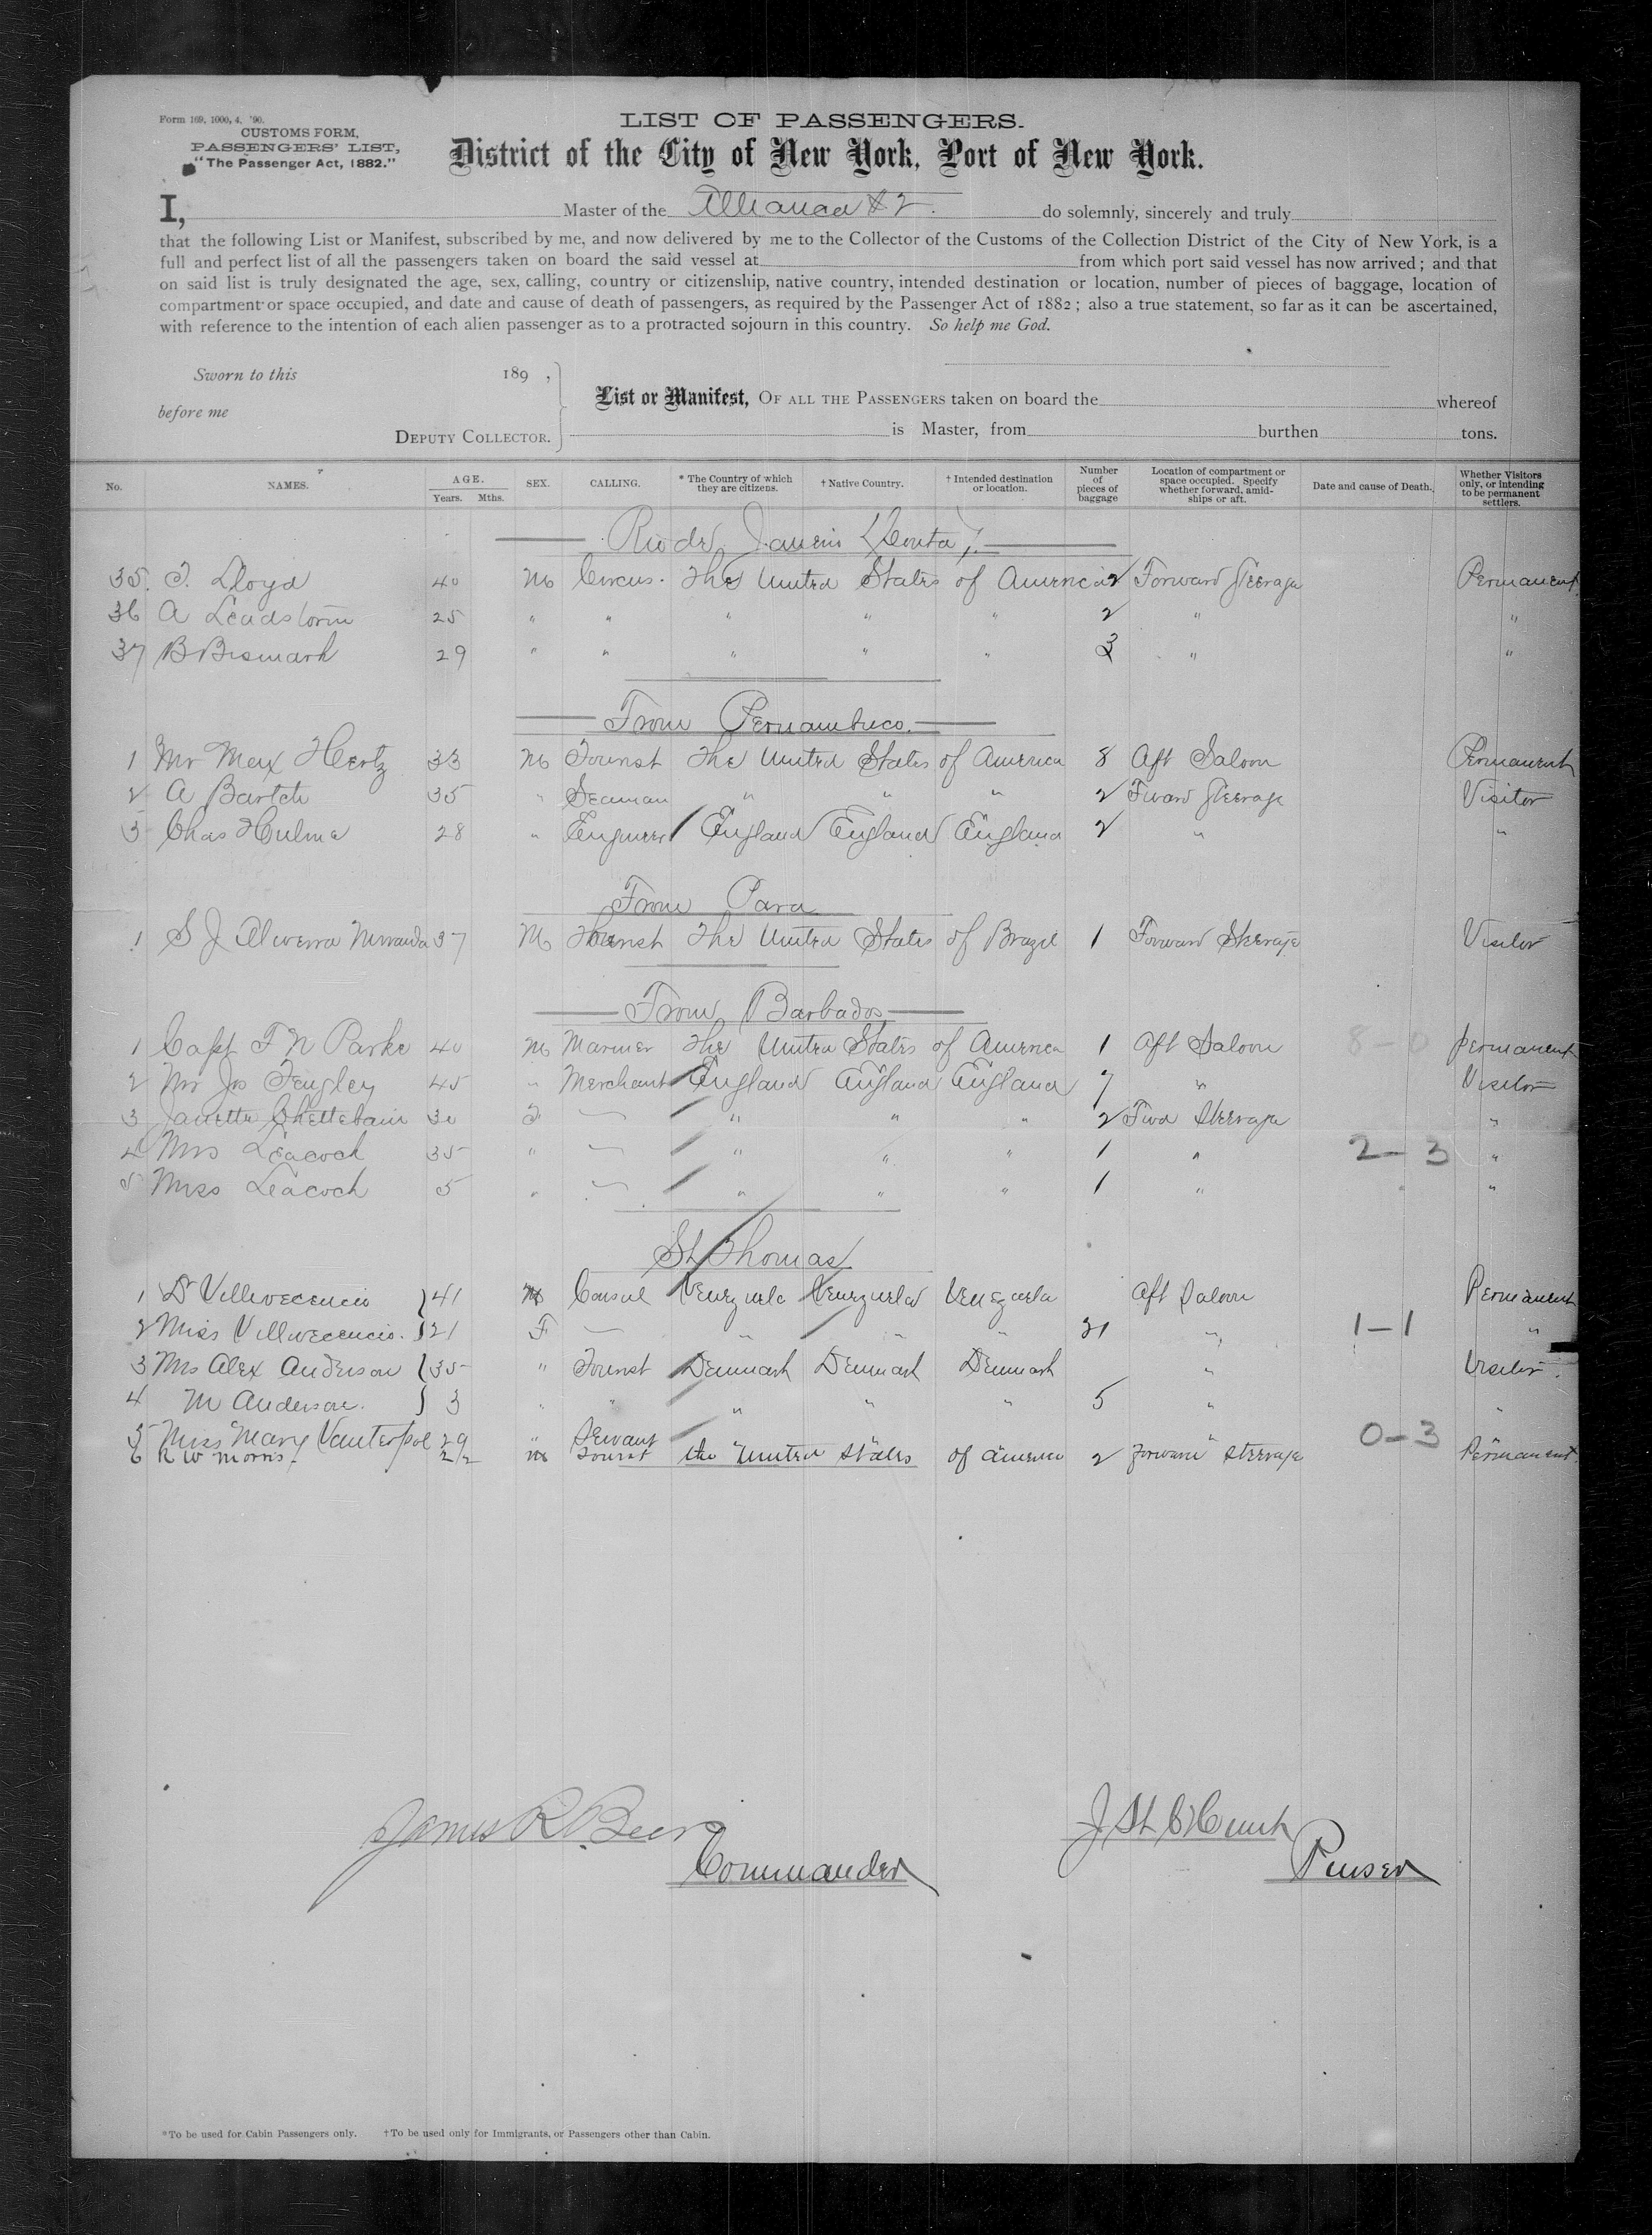 Form 169, 1000, 4, '90.
CUSTOMS FORM,
PASSENGERS' LIST,
"The Passenger Act, 1882."
LIST OF PASSENGERS.
District of the City of New York, Port of New York.
I, Master of the Allianca #2. do solemnly, sincerely and truly
that the following List or Manifest, subscribed by me, and now delivered by me to the Collector of the Customs of the Collection District of the City of New York, is a
full and perfect list of all the passengers taken on board the said vessel at from which port said vessel has now arrived; and that
on said list is truly designated the age, sex, calling, country or citizenship, native country, intended destination or location, number of pieces of baggage, location of
compartment or space occupied, and date and cause of death of passengers, as required by the Passenger Act of 1882; also a true statement, so far as it can be ascertained,
with reference to the intention of each alien passenger as to a protracted sojourn in this country. So help me God.
Sworn to this 189 ,
before me
DEPUTY COLLECTOR.
List or Manifest, OF ALL THE PASSENGERS taken on board the whereof
is Master, from burthen tons.
No. NAMES. AGE. Years. Mths. SEX. CALLING. * The Country of which they are citizens. † Native Country. † Intended destination or location. Number of pieces of baggage Location of compartment or space occupied. Specify whether forward, amidships or aft. Date and cause of Death. Whether Visitors only, or intending to be permanent settlers.
Rio de Janeiro (Conta).
35. J. Lloyd 40 M Circus. The United States of America 2 Forward Steerage Permanent
36 A Leadstorm 25 " " " " " 2 " "
37 B Bismark 29 " " " " " 3 " "
From Pernambuco.
1 Mr Max Hertz 33 M Tourist The United States of America 8 Aft Saloon Permanent
2 A Bartch 35 " Seaman " " " 2 Fward Steerage Visitor
3 Chas Hulme 28 " Engineer England England England 2 " "
From Para
1 S J Alverra Mirranda 37 M Tourist The United States of Brazil 1 Forward Steerage Visitor
From Barbados
1 Capt F N Parke 40 M Mariner The United States of America 1 Aft Saloon 8-0 permanent
2 Mr Jos Tengley 45 " Merchant England England England 7 " Visitor
3 Janette 30 F — " " " 2 Fwd Steerage "
4 Mrs Leacock 35 " — " " " 1 " 2-3 "
5 Miss Leacock 5 " — " " " 1 " "
St Thomas
1 Dr Villevecencio 41 M Consul Venezuela Venezuela Venezuela Aft Saloon Permanent
2 Miss Villevecencio. 21 F — " " " 21 " 1-1 "
3 Mrs Alex Anderson 35 " Tourist Denmark Denmark Denmark " Visitor.
4 M Anderson. 3 " " " " " 5 " "
5 Miss Mary Vanterpol 29 " Servant " " " " 0-3 "
6 R W Morris. 22 M Tourist the United States of America 2 Forward Steerage Permanent
James R Beers
Commander
J St C Hunt
Purser
*To be used for Cabin Passengers only. †To be used only for Immigrants, or Passengers other than Cabin.